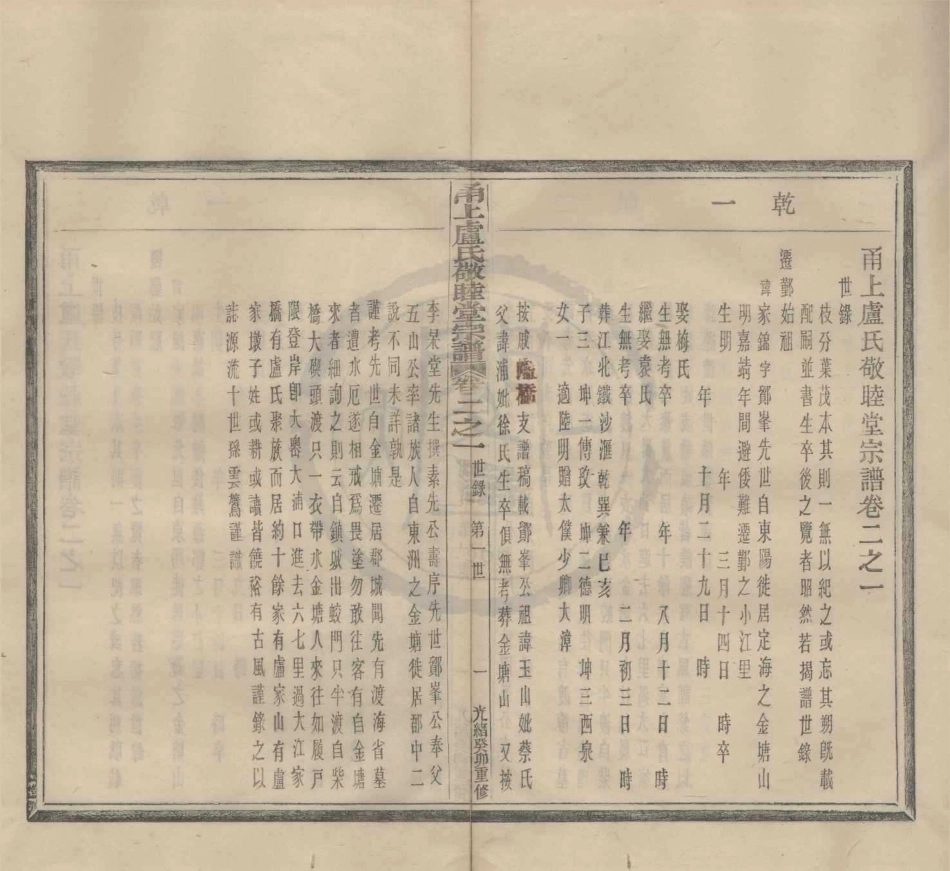 乾一
甬上盧氏敬睦堂宗譜卷二之一
世錄
枝分葉茂本其則一無以紀之或忘其朔旣載
配嗣並書生卒後之覽者昭然若揭譜世錄
遷鄞始祖
諱家鑑字鄮峯先世自東陽徙居定海之金塘山
明嘉靖年間避倭難遷鄞之小江里
生明 年 三月十四日 時卒
年 十月二十九日 時
娶梅氏
生無考卒 年 八月十二日 時
繼娶袁氏
生無考卒 年 二月初三日 時
葬江北鐵沙滙乾巽兼巳亥
子三 坤一傳孜 坤二德明 坤三酉泉
女一 適陸明贈太僕少卿大鏱
按 支譜稿載鄮峯公祖諱玉山妣蔡氏
父諱浦妣徐氏生卒俱無考葬金塘山 又按
甬上盧氏敬睦堂宗譜 卷二之一 世錄 第一世 一 光緒癸卯重修
李杲堂先生撰素先公壽序先世鄮峯公奉父
五山公率諸族人自東洲之金塘徙居郡中二
說不同未詳孰是
謹考先世自金塘遷居郡城聞先有渡海省墓
者遭水厄遂相戒爲畏塗勿敢往客有自金塘
來者細詢之則云自鎮城出蛟門只半渡自柴
橋大碶頭渡只一衣帶水金塘人來往如履戶
限登岸卽大嶴大浦口進去六七里過大江家
橋有盧氏聚族而居約十餘家有盧家山有盧
家墩子姓或耕或讀皆饒裕有古風謹錄之以
誌源流十世孫雲鷟謹識